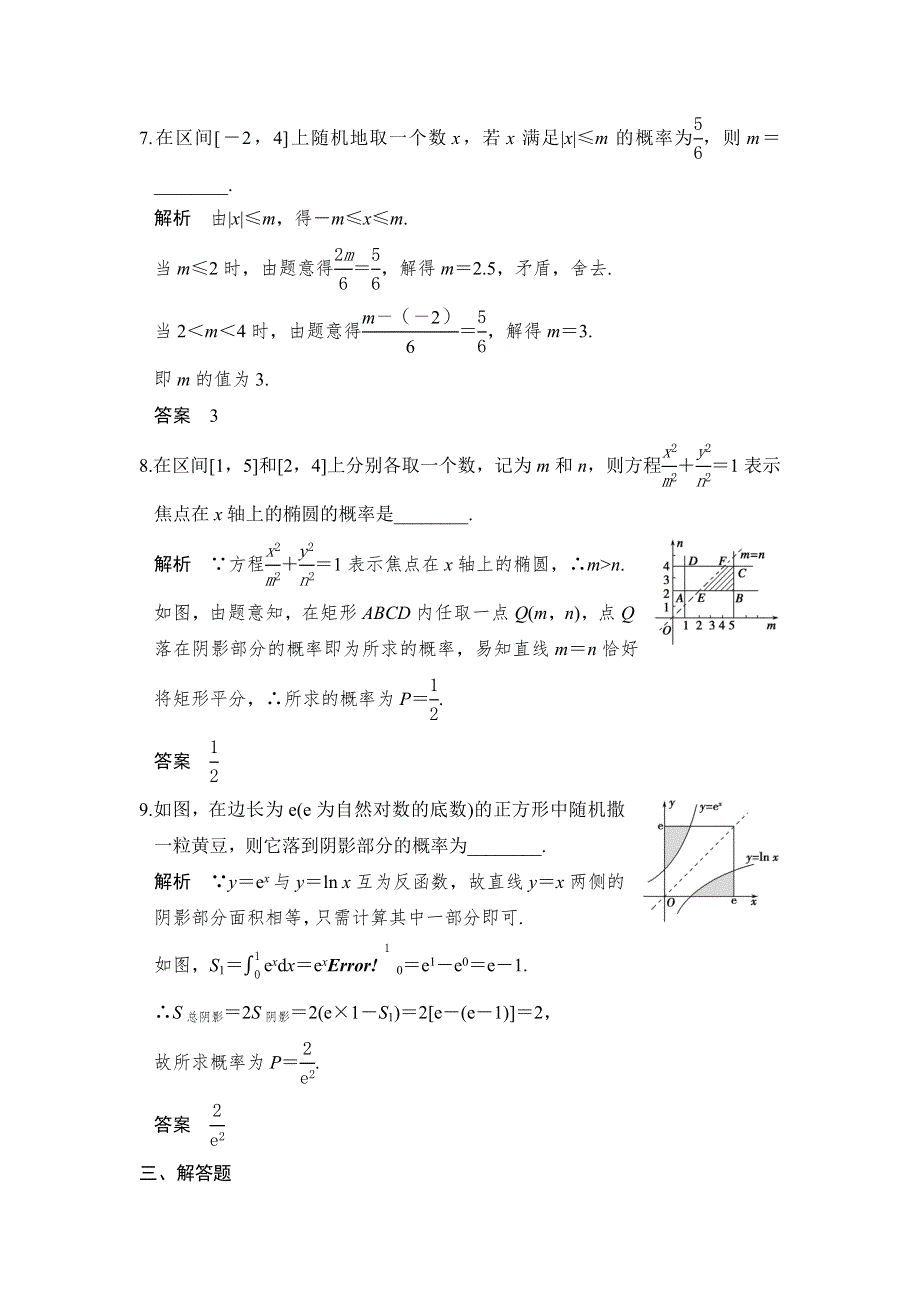 7.在区间[－2，4]上随机地取一个数x，若x满足|x|≤m的概率为5/6，则m＝
________.
解析　由|x|≤m，得－m≤x≤m.
当m≤2时，由题意得2m/6＝5/6，解得m＝2.5，矛盾，舍去.
当2＜m＜4时，由题意得m－(－2)/6＝5/6，解得m＝3.
即m的值为3.
答案　3
8.在区间[1，5]和[2，4]上分别各取一个数，记为m和n，则方程x²/m²＋y²/n²＝1表示
焦点在x轴上的椭圆的概率是________.
解析　∵方程x²/m²＋y²/n²＝1表示焦点在x轴上的椭圆，∴m>n.
如图，由题意知，在矩形ABCD内任取一点Q(m，n)，点Q
落在阴影部分的概率即为所求的概率，易知直线m＝n恰好
将矩形平分，∴所求的概率为P＝1/2.
n
m=n
4 D F
3 C
2 A E B
1
O 1 2 3 4 5 m
答案　1/2
9.如图，在边长为e(e为自然对数的底数)的正方形中随机撒
一粒黄豆，则它落到阴影部分的概率为________.
解析　∵y＝eˣ与y＝ln x互为反函数，故直线y＝x两侧的
阴影部分面积相等，只需计算其中一部分即可.
y y=eˣ
e
y=ln x
O e x
如图，S₁＝∫₀¹eˣdx＝eˣError! ¹₀＝e¹－e⁰＝e－1.
∴S总阴影＝2S阴影＝2(e×1－S₁)＝2[e－(e－1)]＝2，
故所求概率为P＝2/e².
答案　2/e²
三、解答题